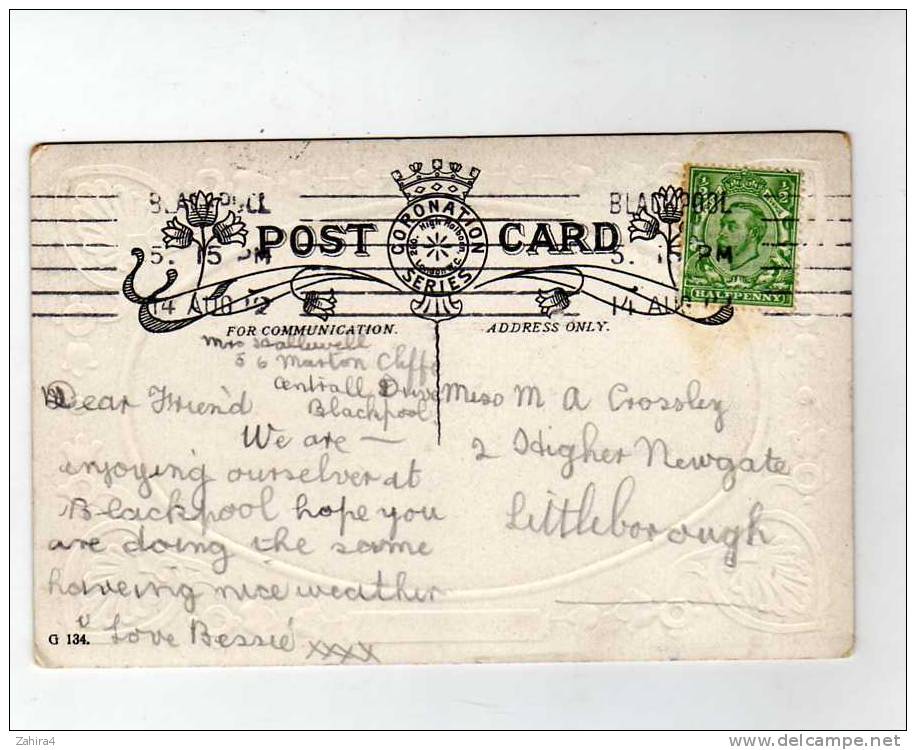 BLACKPOOL
5. 15 PM
14 AUG 12
POST CARD
CORONATION SERIES
High Holborn
London, W.C.
BLACKPOOL
5. 15 PM
14 AUG 12
½ ½
HALFPENNY
FOR COMMUNICATION.
ADDRESS ONLY.
Mrs Halliwell
56 Marton Cliffe
Centrall Drive
Blackpool
Dear Friend
We are —
enjoying ourselver at
Blackpool hope you
are doing the same
haveing nice weather
Love Bessie xxxx
Miss M A Crossley
2 Higher Newgate
Littleborough
G 134.
Zahira4
http://www.delcampe.net